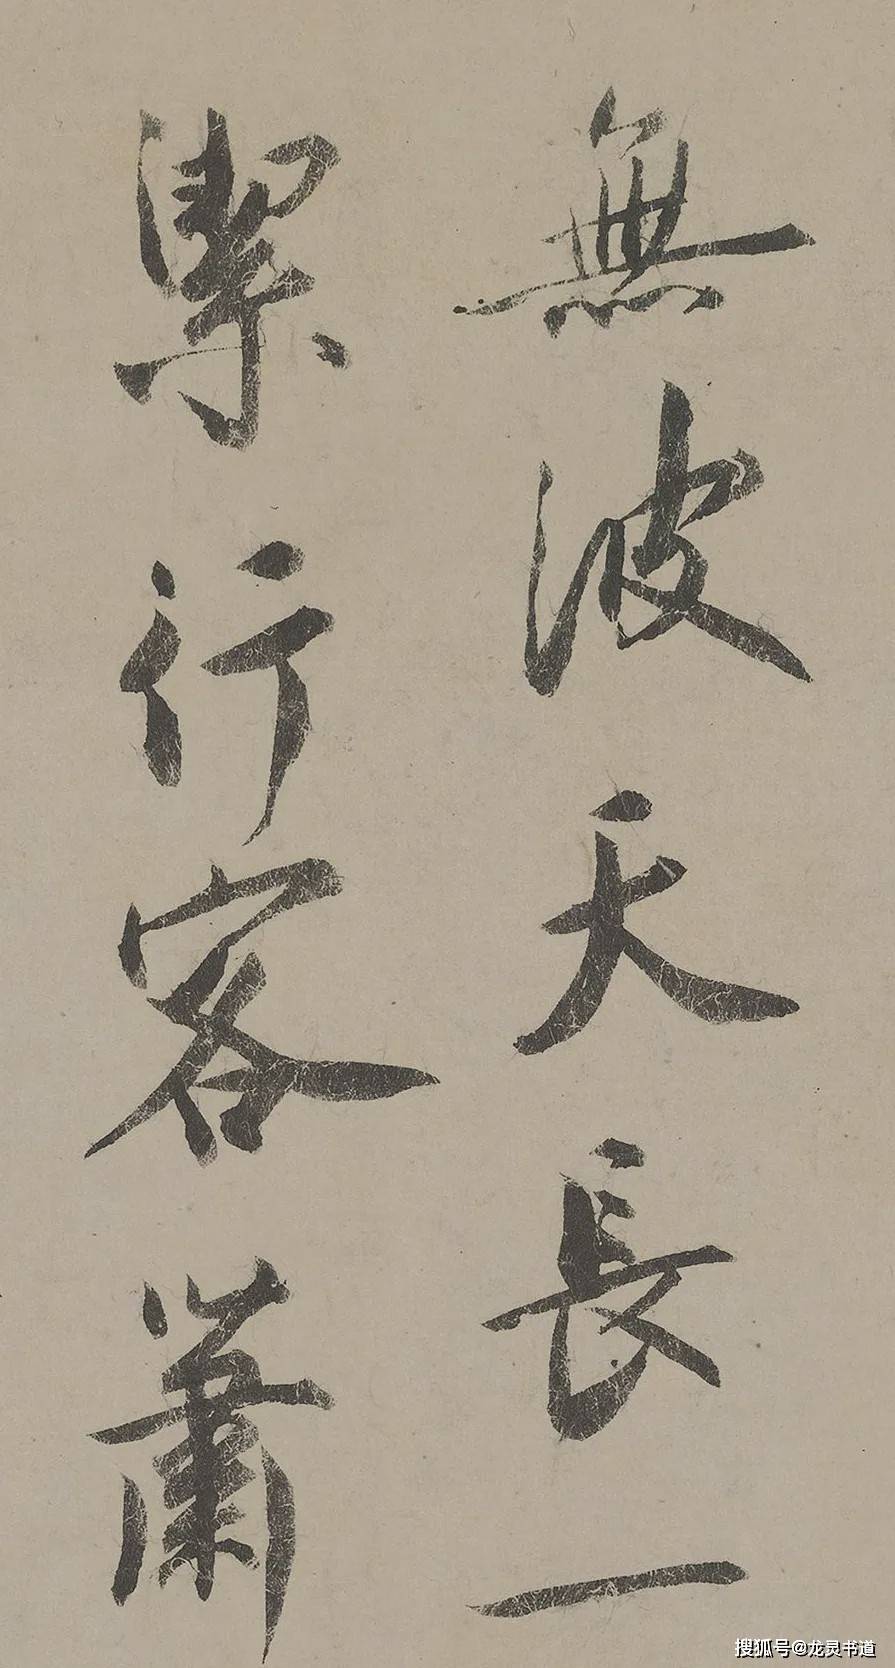 無波天長一
潔行客蕭
搜狐号@龙灵书道